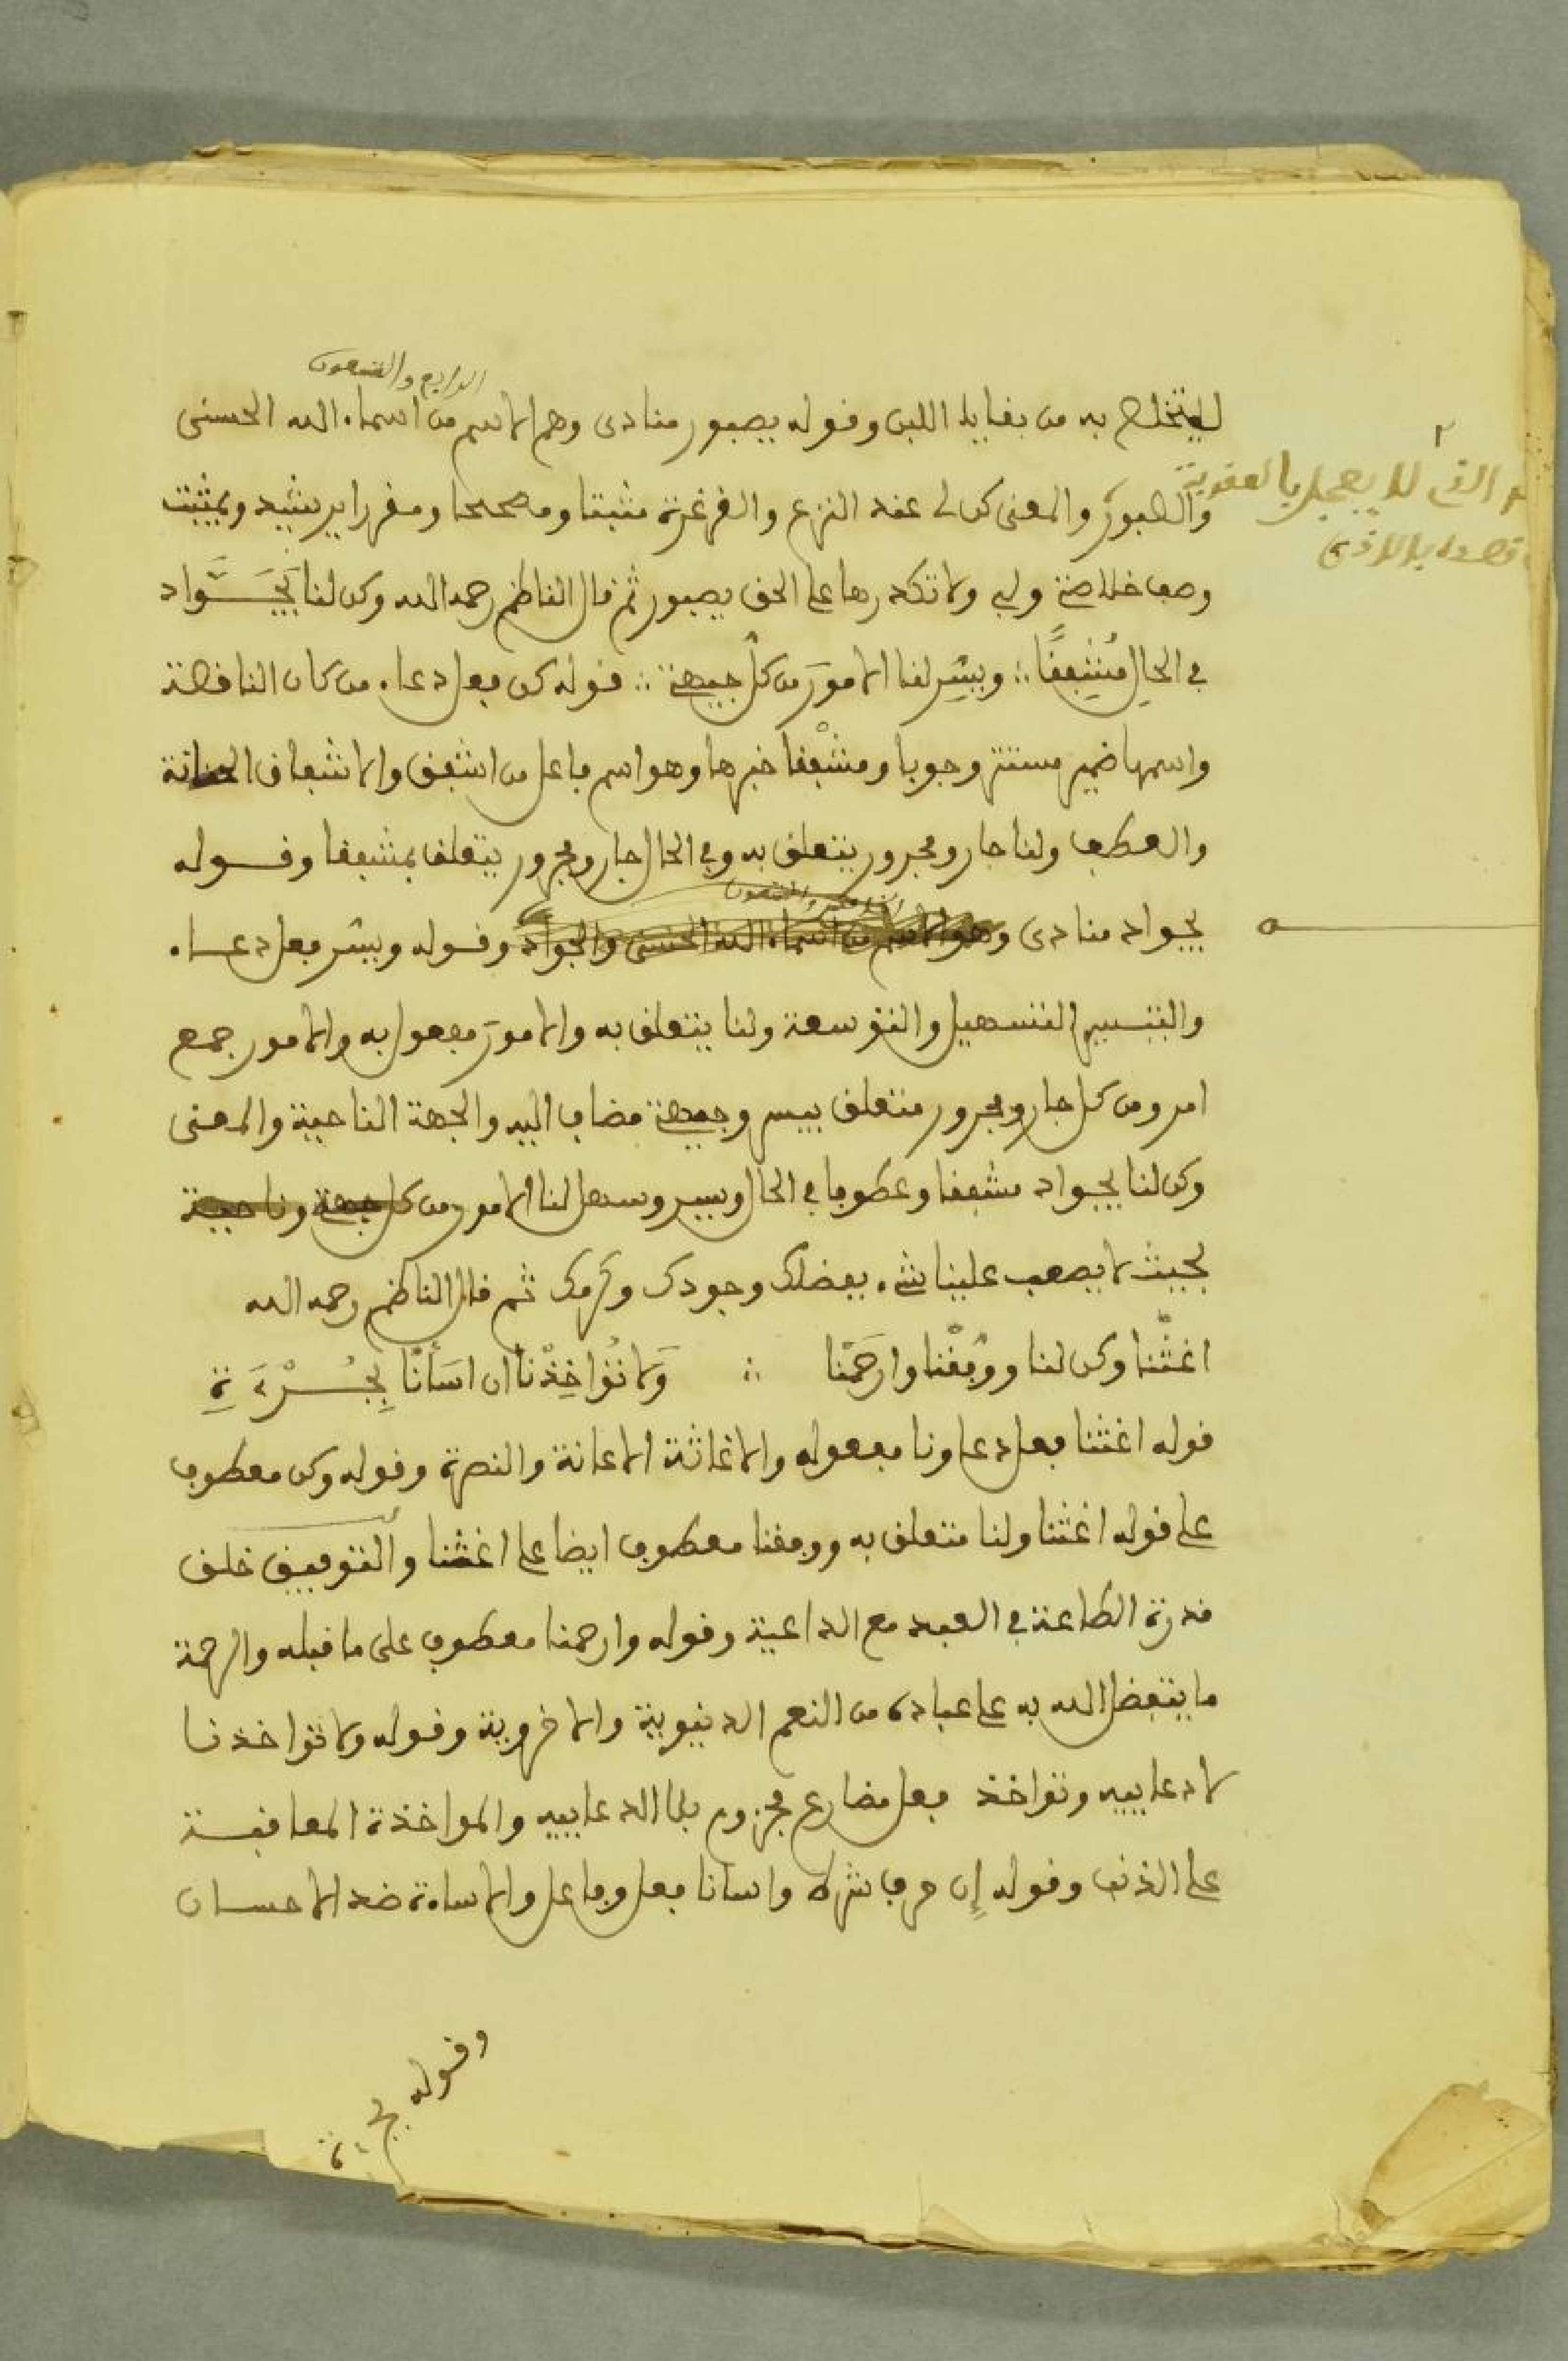 الرابع والتسعون
ليتخلص به من بقايا اللبن وقوله يصبور منادى وهو الاسم من اسماء الله الحسنى
الذي لا يعجل بالعقوبة
والصبور والمعنى كن لي عند النزع والغرغرة مثبتا ومصححا ومفررا يرشيد ويمثبت
وصف خلاصة ولبي ولا تكدرها على الحق يصبور ثم قال الناظم رحمه الله وكن لنا يَجَوَّاد
في الحالِ مُشْفِقًا ∴ ويسِّر لنا الامورَ من كلّ جهة ∴ قوله كن فعل دعاء من كان الناقصة
واسمها ضمير مستتر وجوبا ومشْفقا خبرها وهو اسم فاعل من اشفق والاشفاق الحنانة
والعطف ولنا جار ومجرور يتعلق به وفي الحال جار ومجرور يتعلق بمشفقا وقوله
الخامس والتسعون
يجواد منادى وهو الاسم من اسماء الله الحسنى والجواد وقوله ويسر فعل دعاء
والتيسير التسهيل والتوسعة ولنا يتعلق به والامورَ مفعول به والامور جمع
امر ومن كل جار ومجرور متعلق بيسر وجهة مضاف اليه والجهة الناحية والمعنى
وكن لنا يجواد مشفقا وعطوفا في الحال ويسر وسهل لنا الامور من كل جهة وناحية
بحيث لا يصعب علينا شيء بفضلك وجودك وكرمك ثم قال الناظم رحمه الله
اغثْنا وكن لنا ووَفِّقْنا وارحَمْنا ∴ وَلا تُؤاخِذْنا ان اسَأْنَا بِجُـرْءَةِ
قوله اغثنا فعل دعا ونا مفعوله والاغاثة الاعانة والنصرة وقوله وكن معطوف
على قوله اغثنا ولنا متعلق به ووفقنا معطوف ايضا على اغثنا والتوفيق خلق
قدرة الطاعة في العبد مع الداعية وقوله وارحمنا معطوف على ما قبله والرحمة
ما يتفضل الله به على عباده من النعم الدنيوية والاخروية وقوله ولا تواخذنا
لا دعاييه وتواخذ فعل مضارع مجزوم بلا الدعاييه والمواخذة المعاقبة
على الذنب وقوله إن حرف شرط واسانا فعل وفاعل والاساءة ضد الاحسان
وقوله بجرءة